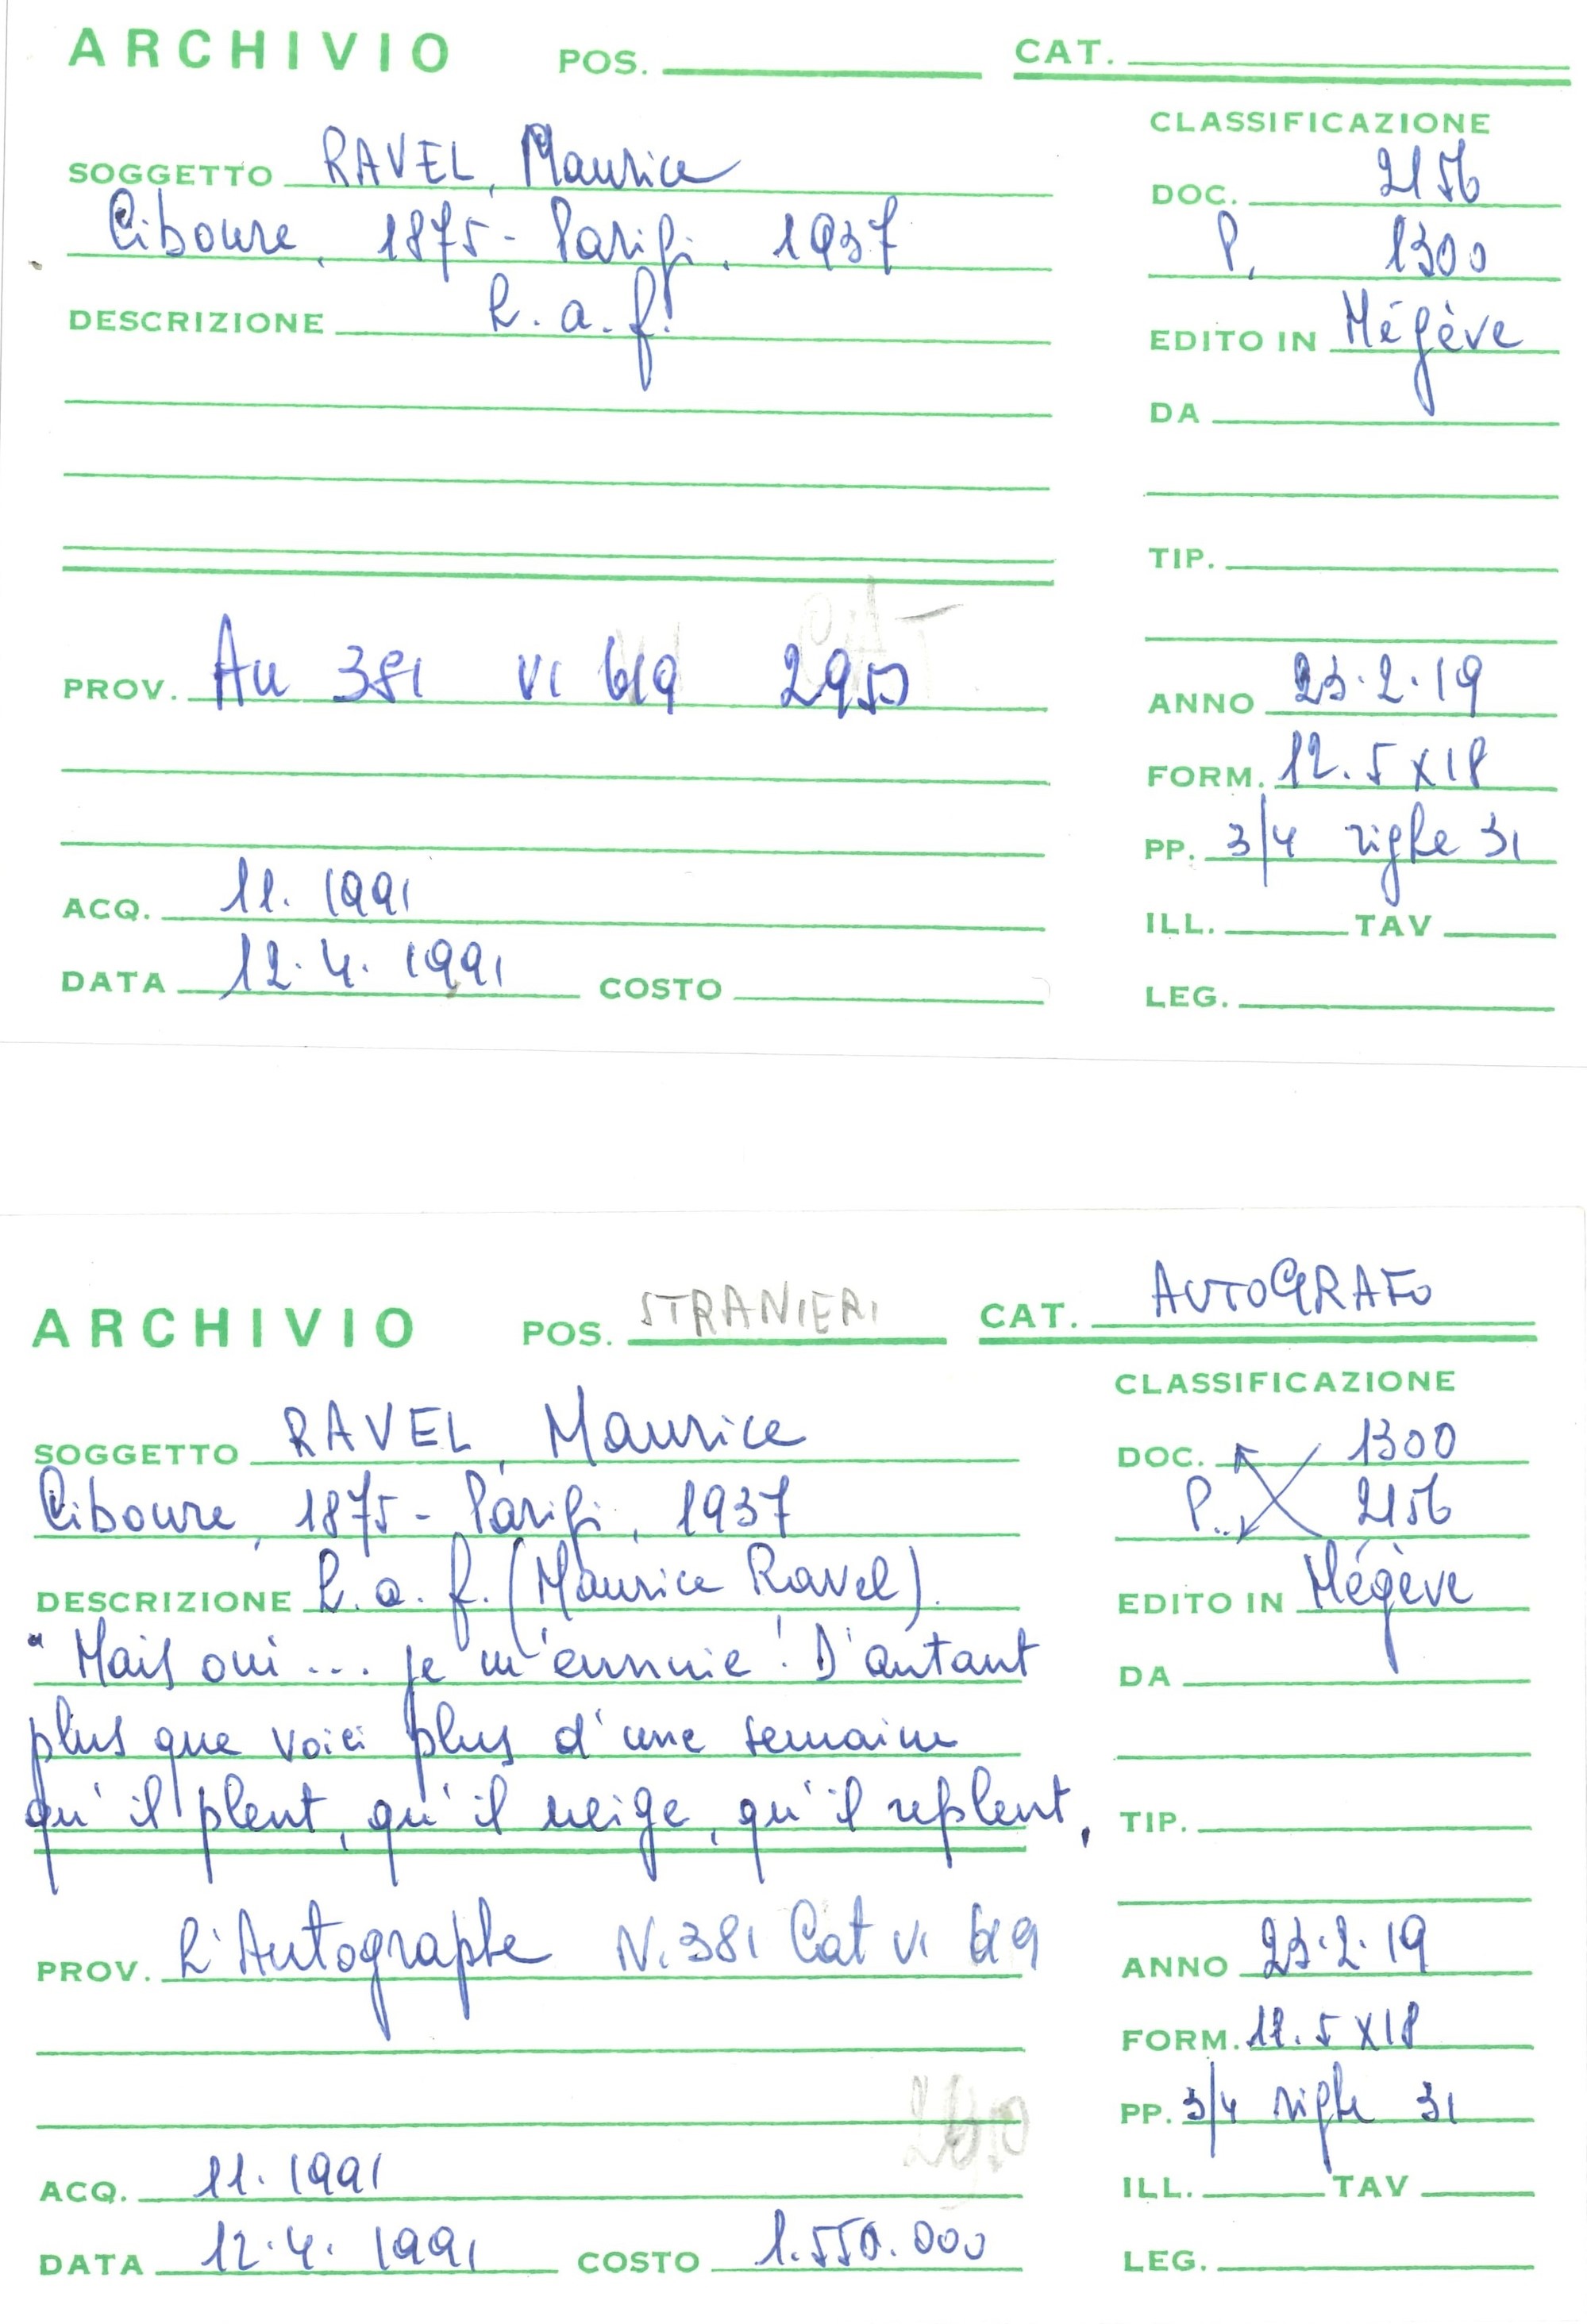 ARCHIVIO POS. CAT.
CLASSIFICAZIONE
SOGGETTO RAVEL, Maurice
DOC. 2156
Ciboure, 1875 - Parigi, 1937
P. 1300
DESCRIZIONE L. a. f.
EDITO IN Mégève
DA
TIP.
PROV. Au 381 VI 619
ANNO 23.2.19
FORM. 12.5 x 18
PP. 3/4 righe 31
ACQ. 11. 1991
ILL. TAV
DATA 12.4. 1991 COSTO
LEG.
ARCHIVIO POS. STRANIERI CAT. AUTOGRAFO
CLASSIFICAZIONE
SOGGETTO RAVEL, Maurice
DOC. 1300
Ciboure, 1875 - Parigi, 1937
P. 2156
DESCRIZIONE L. a. f. (Maurice Ravel).
EDITO IN Mégève
"Mais oui ... je m'ennuie! D'autant
DA
plus que voici plus d'une semaine
qu'il pleut, qu'il neige, qu'il repleut,
TIP.
PROV. L'Autographe N. 381 Cat VI 619
ANNO 23.2.19
FORM. 12.5 x 18
PP. 3/4 righe 31
ACQ. 11. 1991
ILL. TAV
DATA 12.4. 1991 COSTO 1.550.000
LEG.